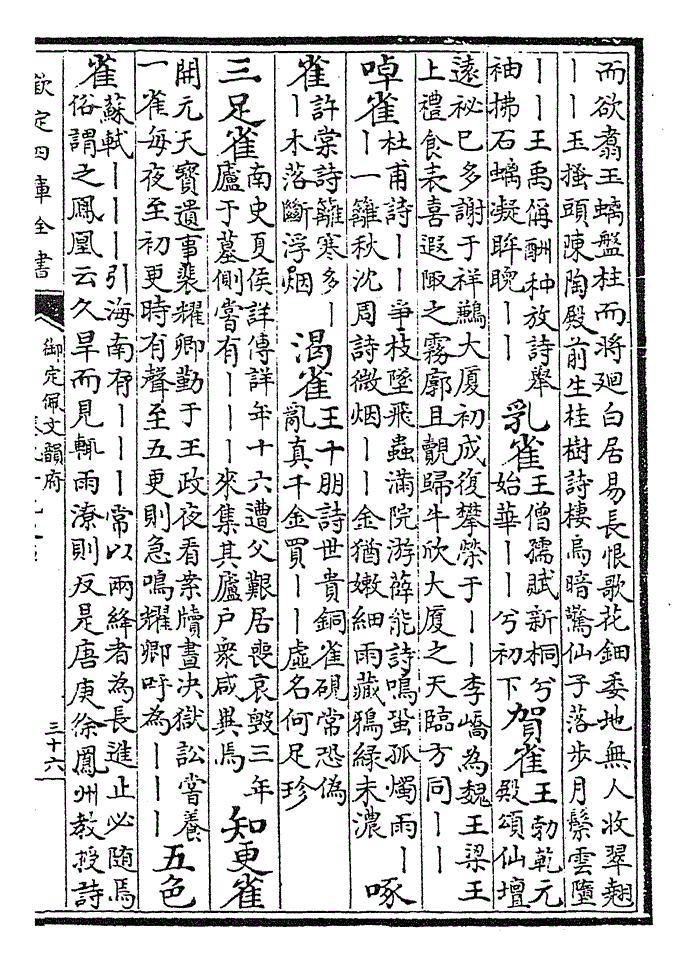 而欲翥玉螭盤柱而將廻白居易長恨歌花鈿委地無人收翠翹
——玉搔頭陳陶殿前生桂樹詩棲烏暗驚仙子落步月鬢雲墮
——王禹偁酬种放詩舉
袖拂石螭凝眸睨——
乳雀
王僧孺賦新桐兮
始華——兮初下
賀雀
王勃乾元
殿頌仙壇
遠祕巳多謝于祥鷫大厦初成復攀榮于——李嶠為魏王梁王
上禮食表喜遐陬之霧廓且覿歸牛欣大厦之天臨方同——
啅雀
杜甫詩——爭枝墜飛蟲滿院游薛能詩鳴蛩孤燭雨—
—一籬秋沈周詩微烟——金猶嫩細雨藏鴉緑未濃
啄
雀
許棠詩籬寒多—
—木落斷浮烟
渴雀
王十朋詩世貴銅雀硯常恐偽
亂真千金買——虛名何足珍
三足雀
南史夏侯詳傳詳年十六遭父艱居喪哀毁三年
廬于墓側嘗有———來集其廬户衆咸異焉
知更雀
開元天寶遺事裴耀卿勤于王政夜看案牘晝决獄訟嘗養
一雀每夜至初更時有聲至五更則急鳴耀卿呼為———
五色
雀
蘇軾———引海南有———常以兩絳者為長進止必隨焉
俗謂之鳳凰云久旱而見輒雨潦則反是唐庚徐鳳州教授詩
欽定四庫全書
御定佩文韻府
三十六